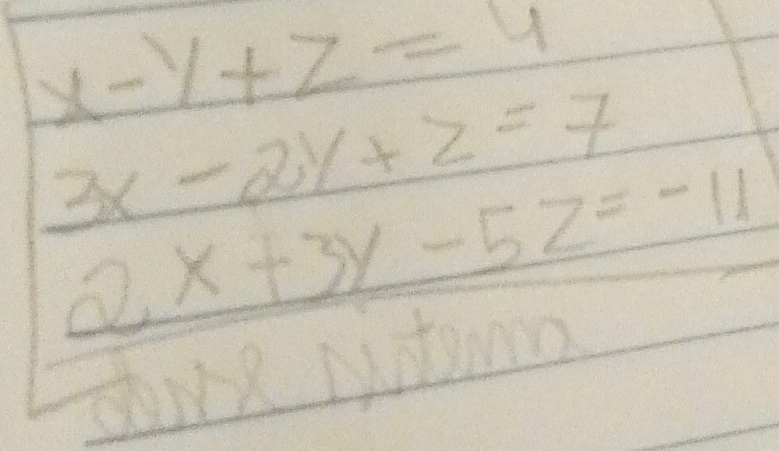 x - y + z = 4
3x - 2y + z = 7
2x + 3y - 5z = -11